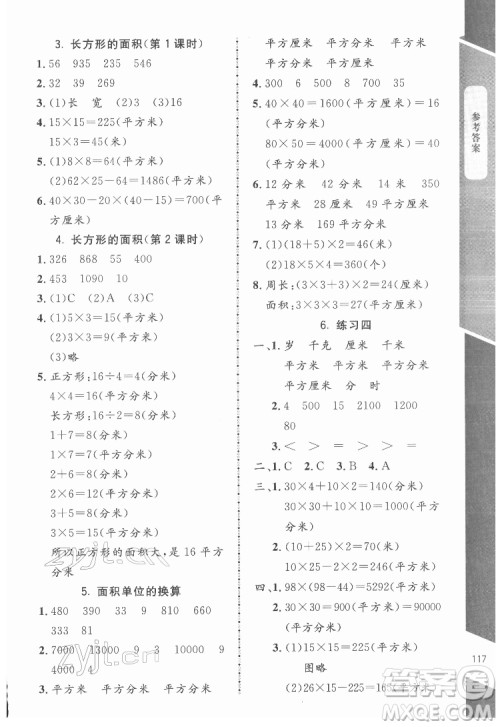 3. 长方形的面积(第1课时)
1. 56 935 235 223
2. 32 429 39 54
3. (1)长 宽 (2)3 (3)16
4. (1)60×25=1500(平方米)
15×3=45(米)
(2)62×25-64=1486(平方米)
5. 40×30-20×(40-20-15)=700(平方米)
4. 长方形的面积(第2课时)
1. 326 868 55 44
2. 453 1090 10
3. (1)C (2)B
4. (1)5×3=15(平方米)
(2)3×3=9(平方米)
(3)略
5. 正方形:16÷4=4(分米)
4×4=16(平方分米)
长方形:16÷2=8(分米)
1+7=8(分米)
1×7=7(平方分米)
2+6=8(分米)
2×6=12(平方分米)
3+5=8(分米)
3×5=15(平方分米)
所以正方形的面积大,是16平方分米
5. 面积单位的换算
1. 480 390 33 9 93 390
2. 7000 13000 10000 4000
9 3 8 6
3. 平方米 平方分米 平方分米
平方厘米 平方米 平方米
平方厘米
4. 300 6 500 8 700 35
5. 40×40=1600(平方厘米)=16
(平方分米)
80×50=4000(平方厘米)=40
(平方分米)
6. 12 分米 24 分米 34 分米
平方米 54 平方厘米 49 平方分米 169 平方分米
7. (1)(18+5)×2=46(米)
(2)18×5×4=360(元)
8. 周长:(3×3+3)×2=24(厘米)
面积:3×3×3=27(平方厘米)
6. 练习四
一、1. 岁 千克 厘米 千米
平方米 平方分米 平方厘米
平方千米 分 时
2. 4 500 15 1200 11
80
3. < > = > >
二、1. C 2. C 3. B 4. A
三、1. 30×4+10×2=140(厘米)
30×30+10×10=1000
(平方厘米)
2. (10+25)×2=70(分米)
四、1. 98×(98-44)=5292(平方厘米)
2. (1)15×15=225(平方厘米)
图略
(2)15×16-225=15(平方厘米)
参考答案
117